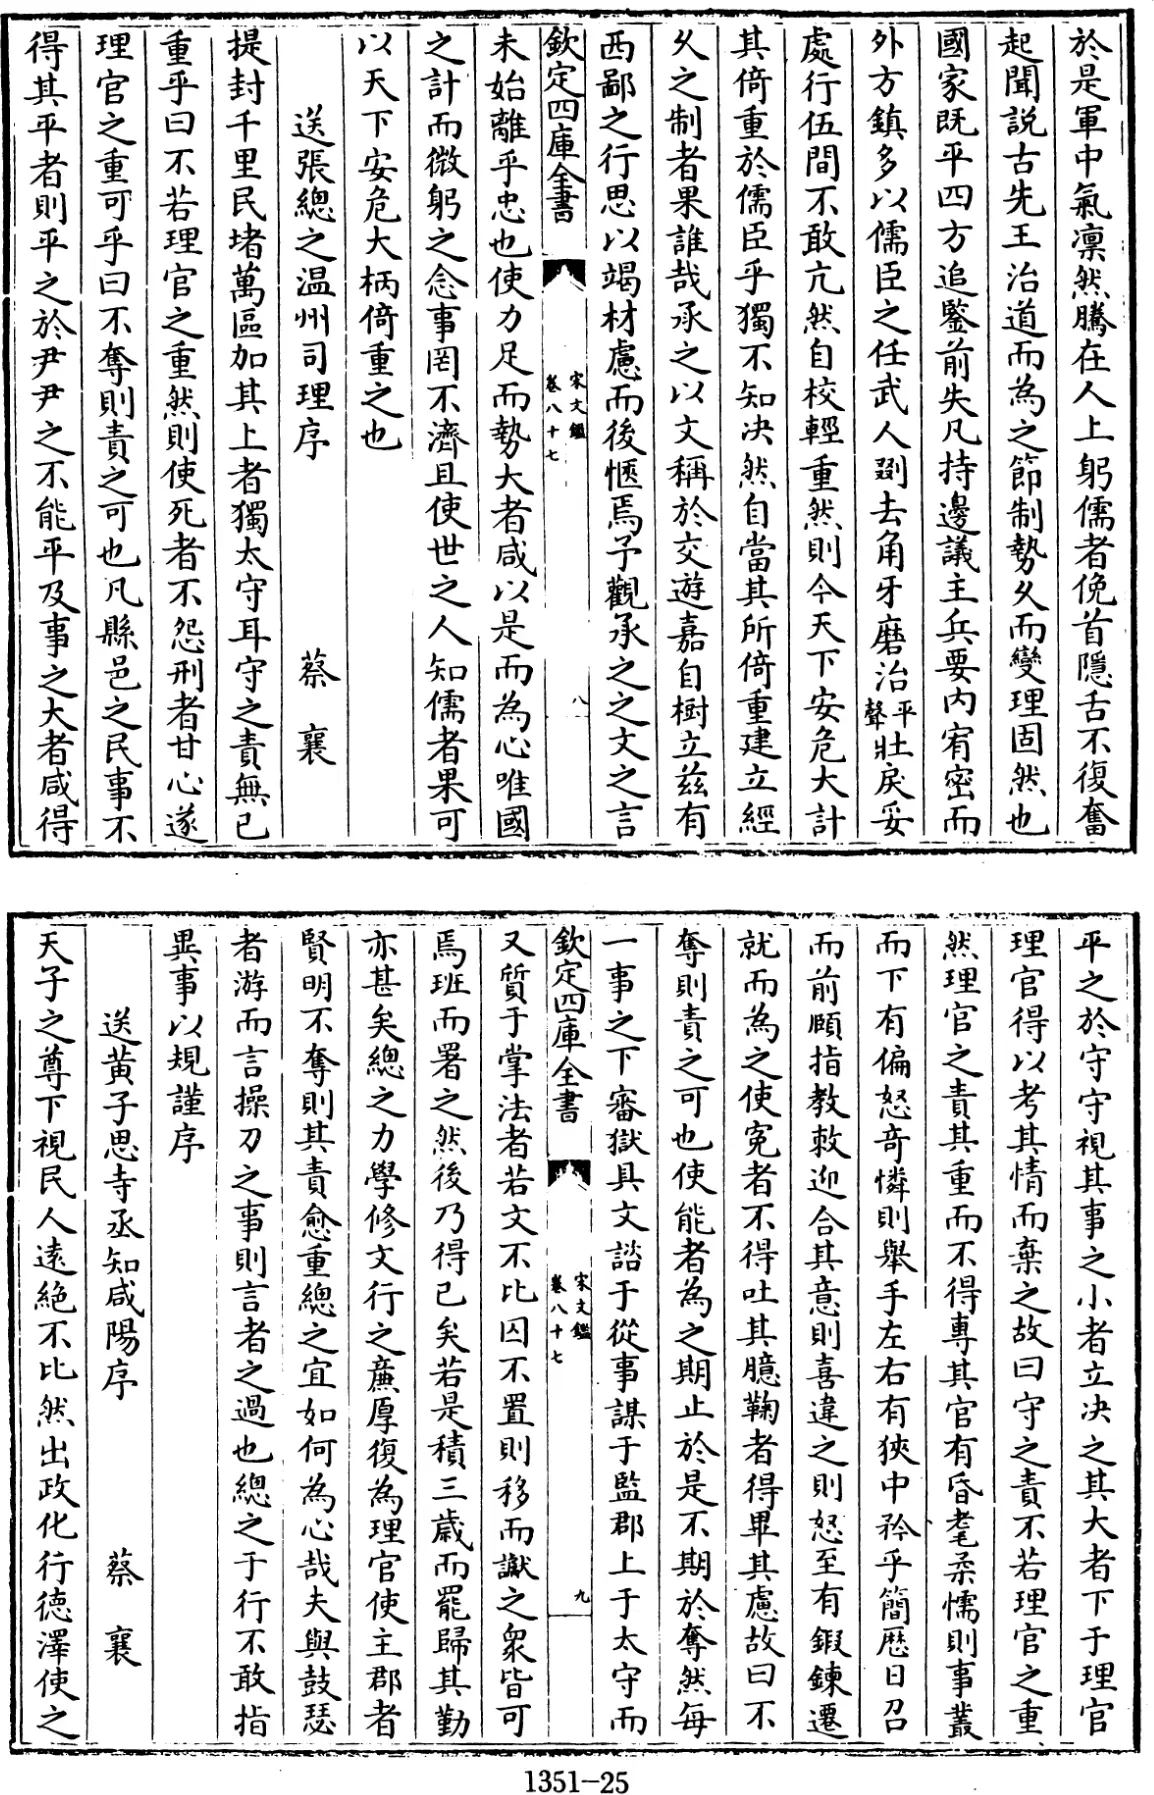 於是軍中氣凛然騰在人上躬儒者俛首隱舌不復奮
起聞説古先王治道而為之節制勢久而變理固然也
國家既平四方追鑒前失凡持邊議主兵要内宥密而
外方鎮多以儒臣之任武人劅去角牙磨治平聲壯戾妥
處行伍間不敢亢然自校輕重然則今天下安危大計
其倚重於儒臣乎獨不知決然自當其所倚重建立經
久之制者果誰哉承之以文稱於交遊嘉自樹立兹有
西鄙之行思以竭材慮而後愜焉予觀承之之文之言
欽定四庫全書 宋文鑑 卷八十七 八
未始離乎忠也使力足而勢大者咸以是而為心唯國
之計而微躬之念事罔不濟且使世之人知儒者果可
以天下安危大柄倚重之也
送張總之温州司理序 蔡襄
提封千里民堵萬區加其上者獨太守耳守之責無已
重乎曰不若理官之重然則使死者不怨刑者甘心遂
理官之重可乎曰不奪則責之可也凡縣邑之民事不
得其平者則平之於尹尹之不能平及事之大者咸得
平之於守守視其事之小者立決之其大者下于理官
理官得以考其情而棄之故曰守之責不若理官之重
然理官之責其重而不得專其官有昏耄柔懦則事叢
而下有偏怒竒憐則舉手左右有狹中矜乎簡歷日召
而前頤指教敕迎合其意則喜違之則怒至有鍜鍊遷
就而為之使寃者不得吐其臆鞠者得畢其慮故曰不
奪則責之可也使能者為之期止於是不期於奪然每
一事之下審獄具文諮于從事謀于監郡上于太守而
欽定四庫全書 宋文鑑 卷八十七 九
又質于掌法者若文不比囚不置則移而讞之衆皆可
焉班而署之然後乃得已矣若是積三歳而罷歸其勤
亦甚矣總之力學修文行之亷厚復為理官使主郡者
賢明不奪則其責愈重總之宜如何為心哉夫與鼓瑟
者游而言操刀之事則言者之過也總之于行不敢指
異事以規謹序
送黄子思寺丞知咸陽序 蔡襄
天子之尊下視民人逺絶不比然出政化行徳澤使之
1351-25